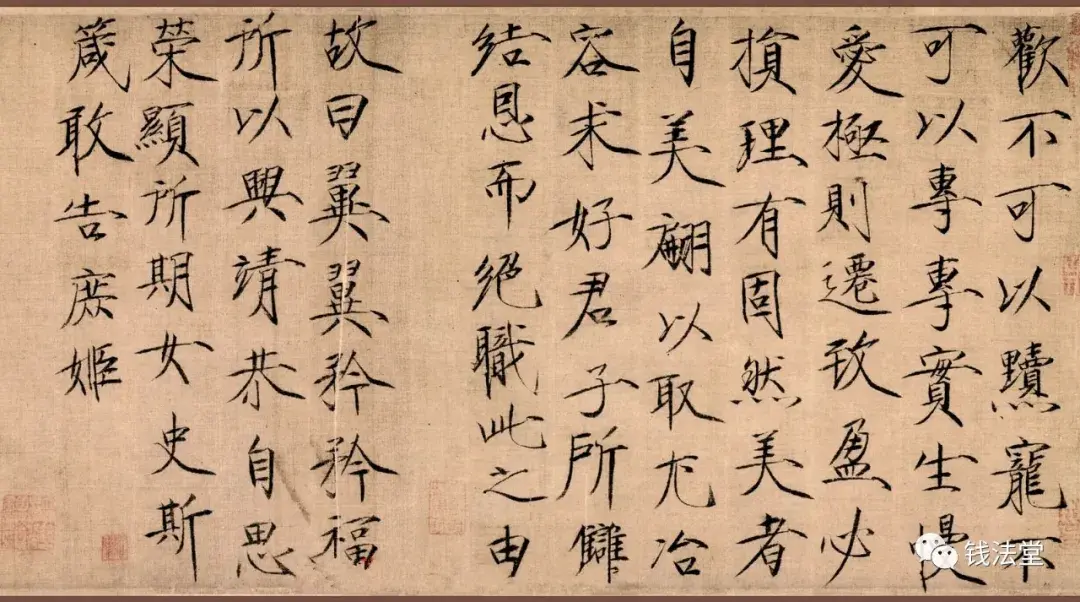 歡不可以黷寵不
可以專專實生慢
愛極則遷致盈必
損理有固然美者
自美翩以取尤冶
容求好君子所讎
結恩而絕職此之由
故曰翼翼矜矜福
所以興靖恭自思
榮顯所期女史斯
箴敢告庶姬
钱法堂